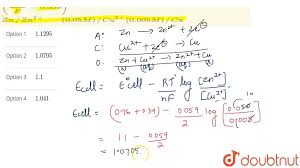 Zn/Zn²⁺ (0.08M) / Cu²⁺ (0.008M) / Cu
Option 1 1.1205
Option 2 1.0705
Option 3 1.1
Option 4 1.041
A: Zn → Zn²⁺ + 2e⊖
C: Cu²⁺ + 2e⊖ → Cu
O: Zn + Cu²⁺ → Zn²⁺ + Cu
Ecell = E°cell - RT/nF log [Zn²⁺]/[Cu²⁺]
Ecell = (0.76 + 0.34) - 0.059/2 log
= 1.1 - 0.059/2
= 1.0705
doubtnut